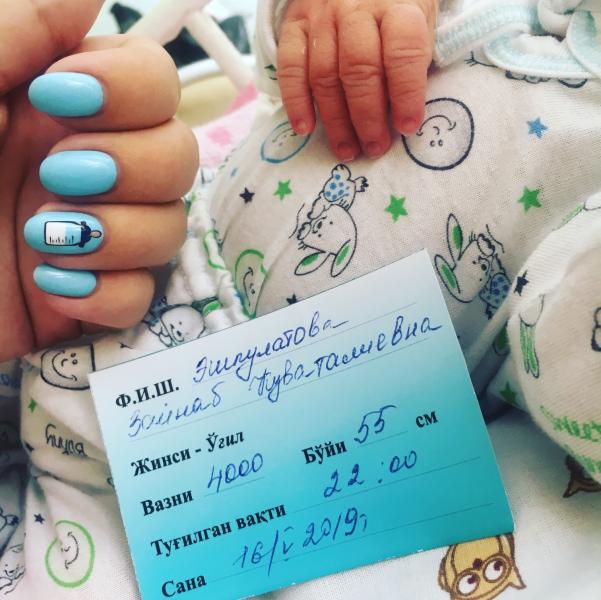 Ф.И.Ш. Эшпулатова
Зайнаб Қуваталиевна
Жинси - Ўғил
Вазни 4000 Бўйи 55 см
Туғилган вақти 22:00
Сана 16/V 2019й